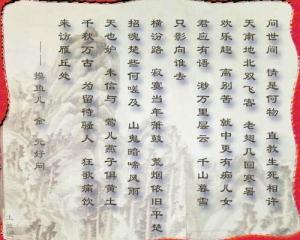 问世间 情是何物 直教生死相许
天南地北双飞客 老翅几回寒暑
欢乐趣 离别苦 就中更有痴儿女
君应有语 渺万里层云 千山暮雪
只影向谁去
横汾路 寂寞当年箫鼓 荒烟依旧平楚
招魂楚些何嗟及 山鬼暗啼风雨
天也妒 未信与 莺儿燕子俱黄土
千秋万古 为留待骚人 狂歌痛饮
来访雁丘处
——摸鱼儿 金 元好问